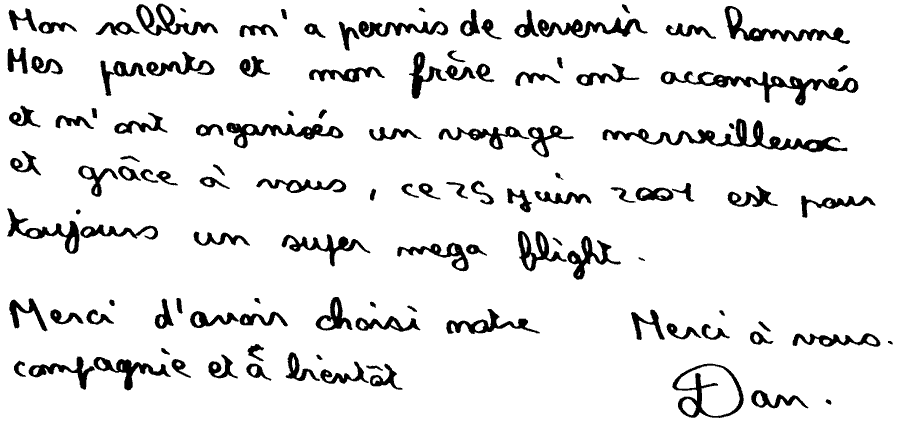 Mon rabbin m'a permis de devenir un homme
Mes parents et mon frère m'ont accompagnés
et m'ont organisés un voyage merveilleux
et grâce à vous, ce 25 juin 2001 est pour
toujours un super mega flight.
Merci d'avoir choisi notre
compagnie et à bientôt
Merci à vous.
Dan.